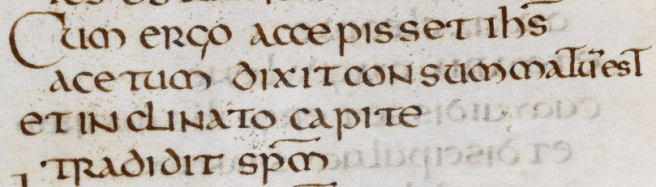 Cum ergo accepisset ihs̄
acetum dixit consummatū est
et inclinato capite
tradidit sp̄m